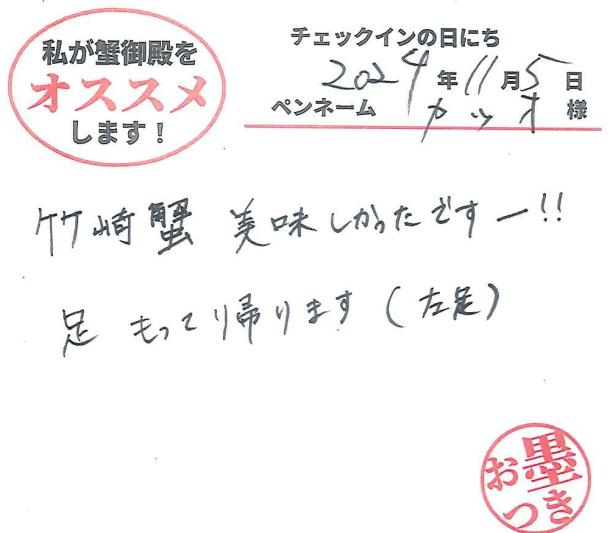 私が蟹御殿を
オススメ
します！
チェックインの日にち
2024年11月5日
ペンネーム カッオ 様
竹崎蟹 美味しかったですー!!
足 もってり帰ります（左足）
お墨
つき